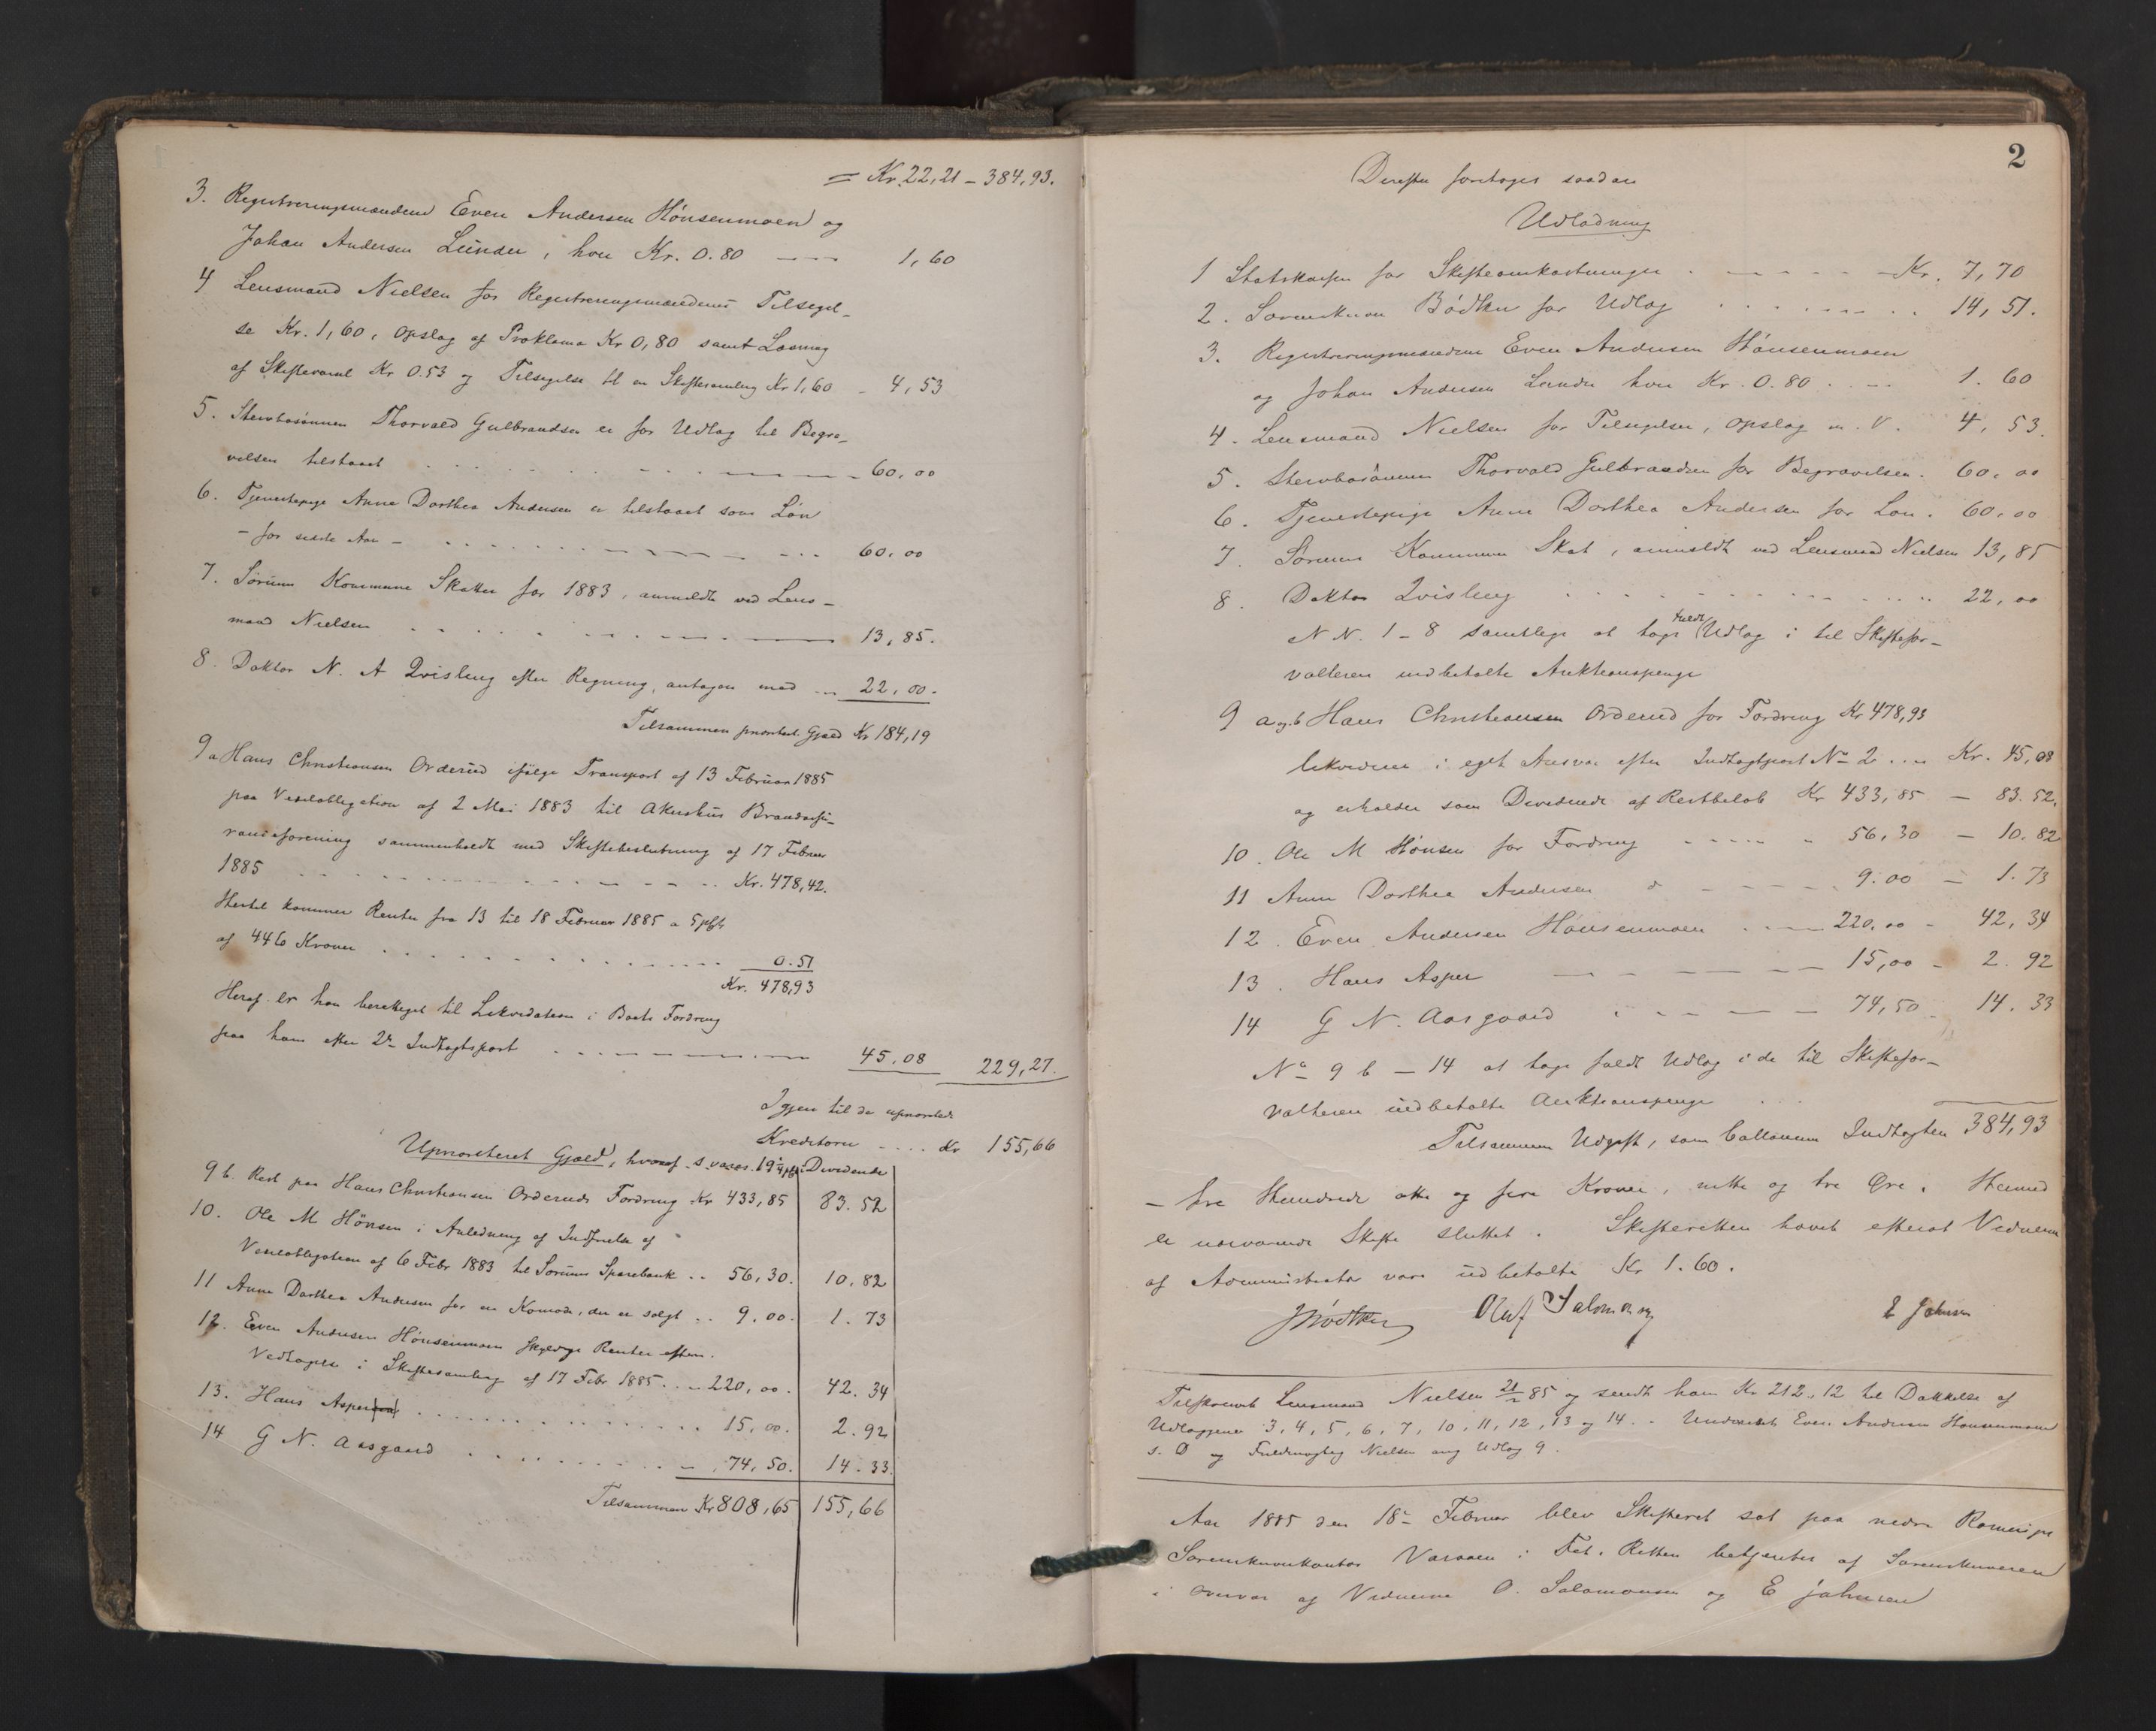 = Kr. 22,21 – 384,93.
3. Registreringsmændene Even Andersen Hönsenmoen og
Johan Andersen Lunder, hver Kr. 0.80 1,60
4 Lensmand Nielsen for Registreringsmændenes Tilsigel-
se Kr. 1,60, Opslag af Proklama Kr 0,80 samt Læsning
af Skiftevarsel Kr 0.53 og Tilsigelse til en Skiftesamling Kr 1,60 – 4,53
5. Stervbosönnen Thorvald Gulbrandsen er for Udlæg til Begra-
velsen tilstaaet 60,00
6. Tjenestepige Anne Dorthea Andersen er tilstaaet som Lön
– for sidste Aar – 60,00
7. Sörum Kommune Skatter for 1883, anmeldt ved Lens-
mand Nielsen 13,85.
8. Doktor N. A Qvisling efter Regning, antagen med 22,00.
Tilsammen prioritert Gjæld Kr 184,19
9a Hans Christiansen Orderud ifølge Transport af 13 Februar 1885
paa Vexelobligation af 2 Mai 1883 til Akershus Brandassu-
ranceforening sammenholdt med Skiftebeslutning af 17 Februar
1885 Kr. 478,42.
Hertil kommer Renter fra 13 til 18 Februar 1885 a 5 pCt
af 446 Kroner 0.51
Kr. 478,93
Heraf er han berettiget til Likvidation i Boets Fordring
paa ham efter 2den Indtægtspost 45,08 229,27.
Igjen til de uprioriterte
Kreditorer Kr 155,66
Uprioriteret Gjæld, hvoraf svares 19 1/4 pCt Dividende
9 b. Rest paa Hans Christiansen Orderuds Fordring Kr 433,85 83.52
10. Ole M Hönsen i Anledning af Indfrielse af
Vexelobligation af 6 Febr 1883 til Sörum Sparebank .. 56,30. 10.82
11 Anne Dorthea Andersen for en Komode, der er solgt .. 9.00. 1.73
12. Even Andersen Hönsenmoen skyldige Renter efter
Vedtagelse i Skiftesamling af 17 Febr 1885 220,00. 42.34
13. Hans Asper 15,00. 2.92
14 G N. Aasgaard 74,50. 14.33.
Tilsammen Kr 808,65 155,66
2
Derefter foretoges saadan
Udlodning
1 Statskassen for Skifteomkostninger Kr. 7,70
2. Sorenskriver Bödtker for Udlæg 14,51.
3. Registreringsmændene Even Andersen Hönsenmoen
og Johan Andersen Lunder hver Kr. 0.80 1.60
4. Lensmand Nielsen for Tilsigelser, Opslag m. V. 4,53.
5. Stervbosönnen Thorvald Gulbrandsen for Begravelsen. 60,00
6. Tjenestepige Anne Dorthea Andersen for Lön. 60,00
7. Sörum Kommune Skat, anmeldt ved Lensmand Nielsen 13,85
8. Doktor Qvisling 22,00
N N. 1 – 8 samtlige at tage fuldt Udlæg i til Skiftefor-
valteren indbetalte Auktionspenge
9 a og b Hans Christiansen Orderud for Fordring Kr 478,93
likviderer i eget Ansvar efter Indtægtspost No 2 Kr. 45,08
og erholder som Dividende af Restbelöb Kr 433,85 – 83.52.
10. Ole M Hönsen for Fordring 56,30 – 10.82
11 Anne Dorthea Andersen 9.00 – 1.73
12. Even Andersen Hönsenmoen 220,00 – 42,34
13. Hans Asper 15,00 – 2.92
14 G N. Aasgaard 74,50 – 14.33
No 9 b – 14 at tage fuldt Udlæg i de til Skiftefor-
valteren indbetalte Auktionspenge
Tilsammen Udgift, som ballancerer Indtægten 384,93
– tre Hundrede otte og firs Kroner, nitti og tre Øre. Hermed
er nærværende Skifte sluttet. Skifteretten hævet efterat Vidnerne
af Administrator vare udbetalte Kr 1.60.
JBödtker Oluf Salomonsen E Johnsen
Tilskrevet Lensmand Nielsen 21/2 85 og sendt ham Kr 212.12 til Dækkelse af
Udlæggene 3, 4, 5, 6, 7, 10, 11, 12, 13 og 14. – Underrettet Even Andersen Hönsenmoen
s. D og Fuldmægtig Nielsen ang Udlæg 9.
Aar 1885 den 18de Februar blev Skifteret sat paa nedre Romeriges
Sorenskriverkontor Varaaen i Fet. Retten betjentes af Sorenskriveren
i Overvær af Vidnerne O. Salomonsen og E Johnsen